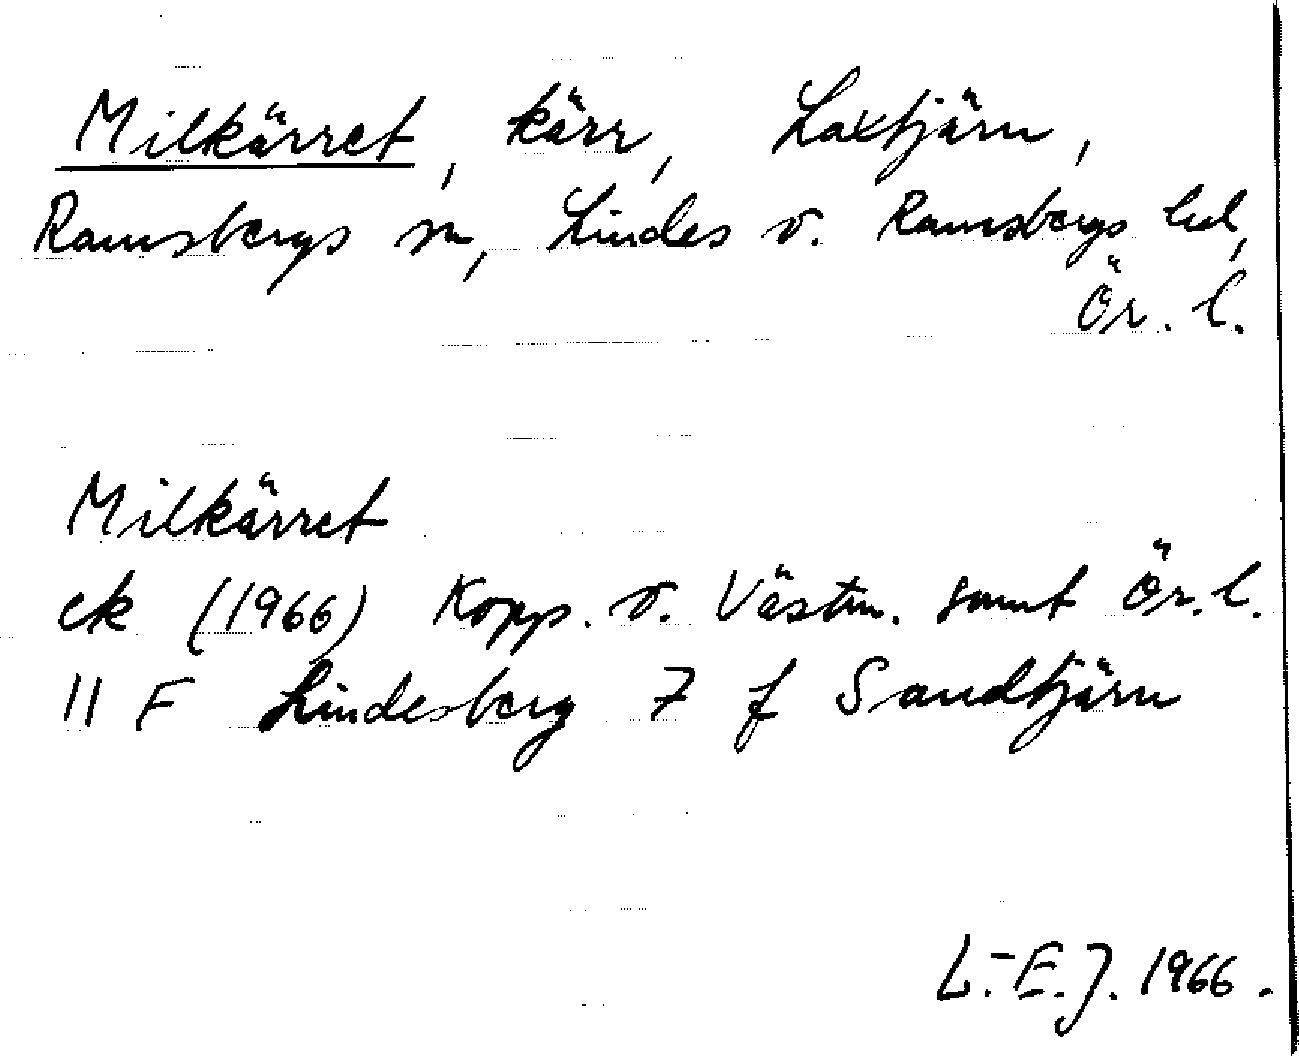 Milkärret, kärr, Laxtjärn,
Ramsbergs sn, Lindes o. Ramsbergs bd,
Ör. l.
Milkärret
ek (1966) Kopp. o. Västm. samt Ör. l.
11 F Lindesberg 7 f Sandtjärn
L.-E. J. 1966.